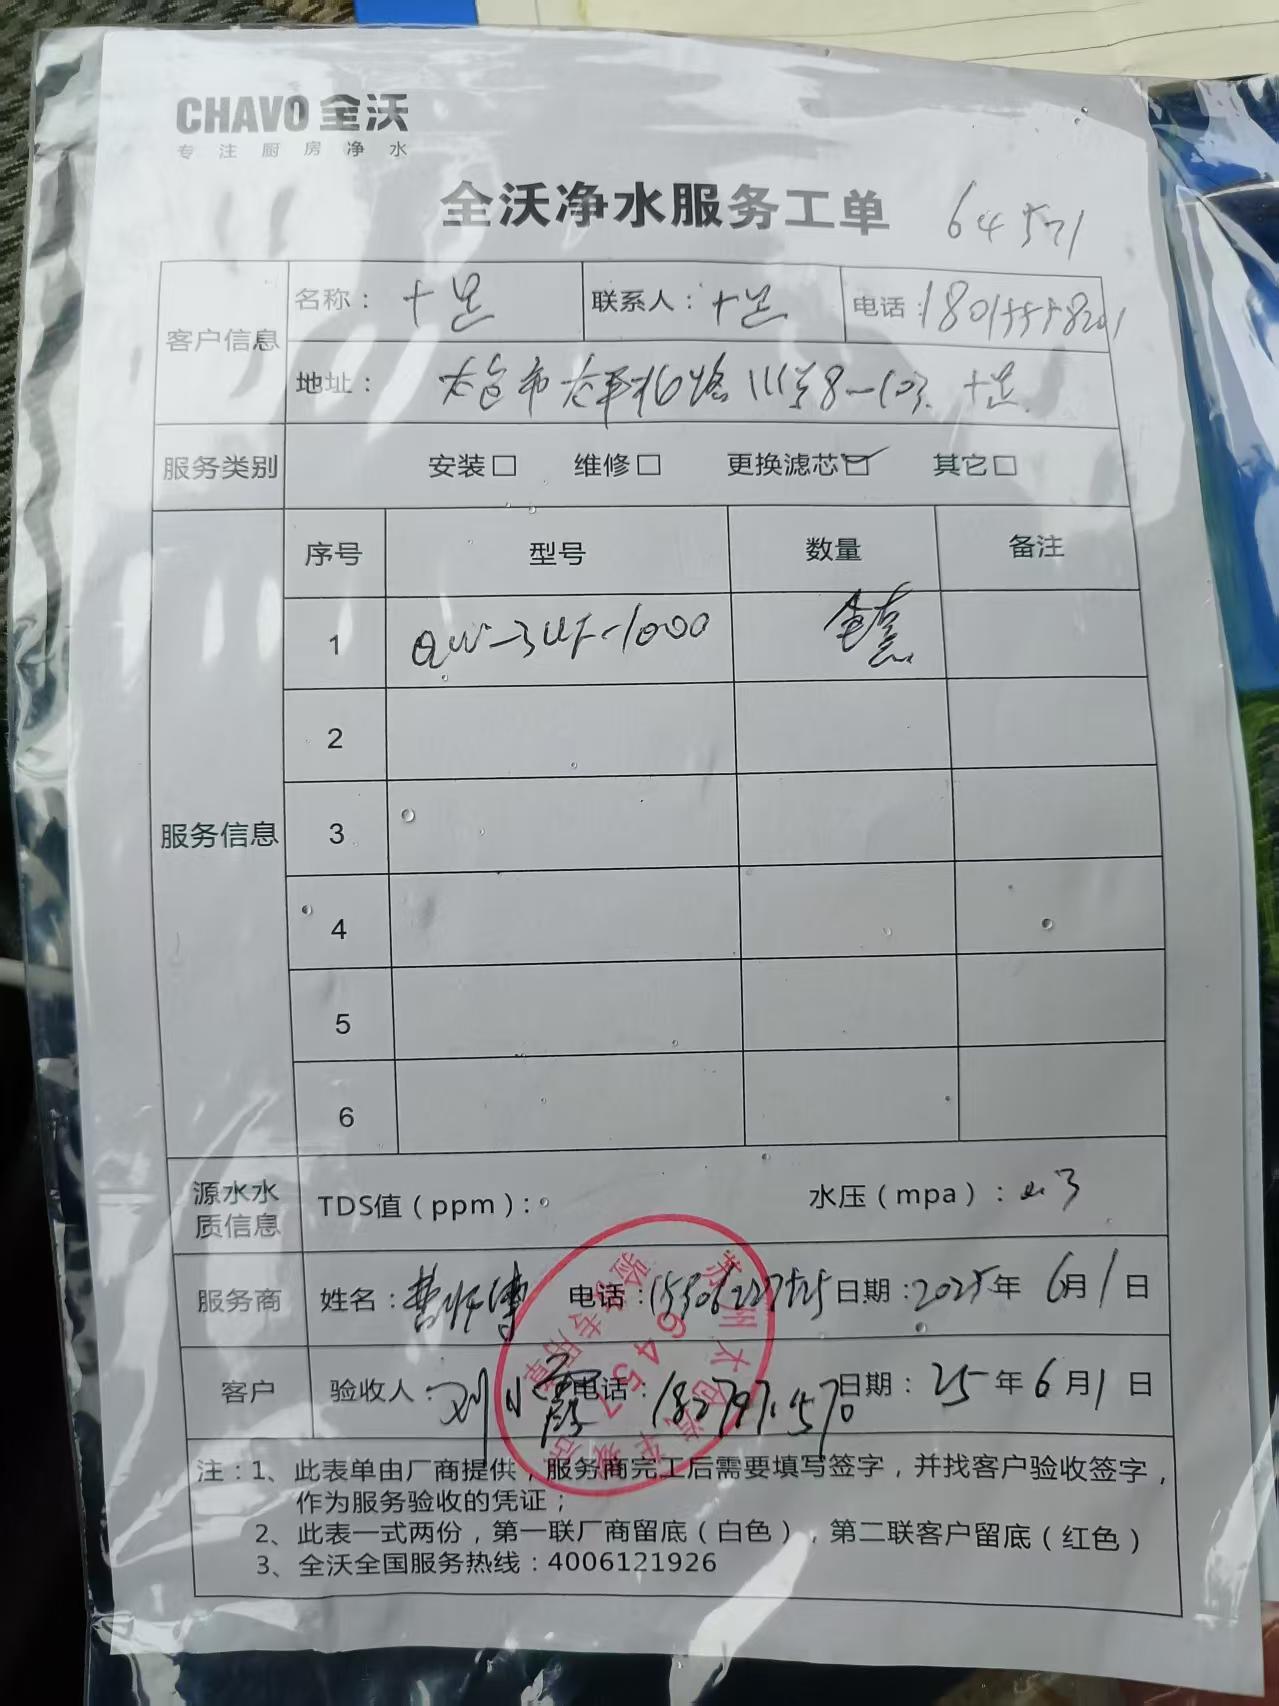 CHAVO 全沃
专注厨房净水
全沃净水服务工单 64571
客户信息
名称： 十足 联系人： 十足 电话：
地址： 太仓市太平北路111号8-103 十足
服务类别 安装□ 维修□ 更换滤芯☑ 其它□
服务信息
序号 型号 数量 备注
1 QW-3UF-1000
2
3
4
5
6
源水水质信息 TDS值（ppm）： 水压（mpa）：
服务商 姓名：曹师傅 电话： 日期：2025年6月1日
客户 验收人： 电话： 日期：25年6月1日
注：1、此表单由厂商提供，服务商完工后需要填写签字，并找客户验收签字，
作为服务验收的凭证；
2、此表一式两份，第一联厂商留底（白色），第二联客户留底（红色）
3、全沃全国服务热线：4006121926